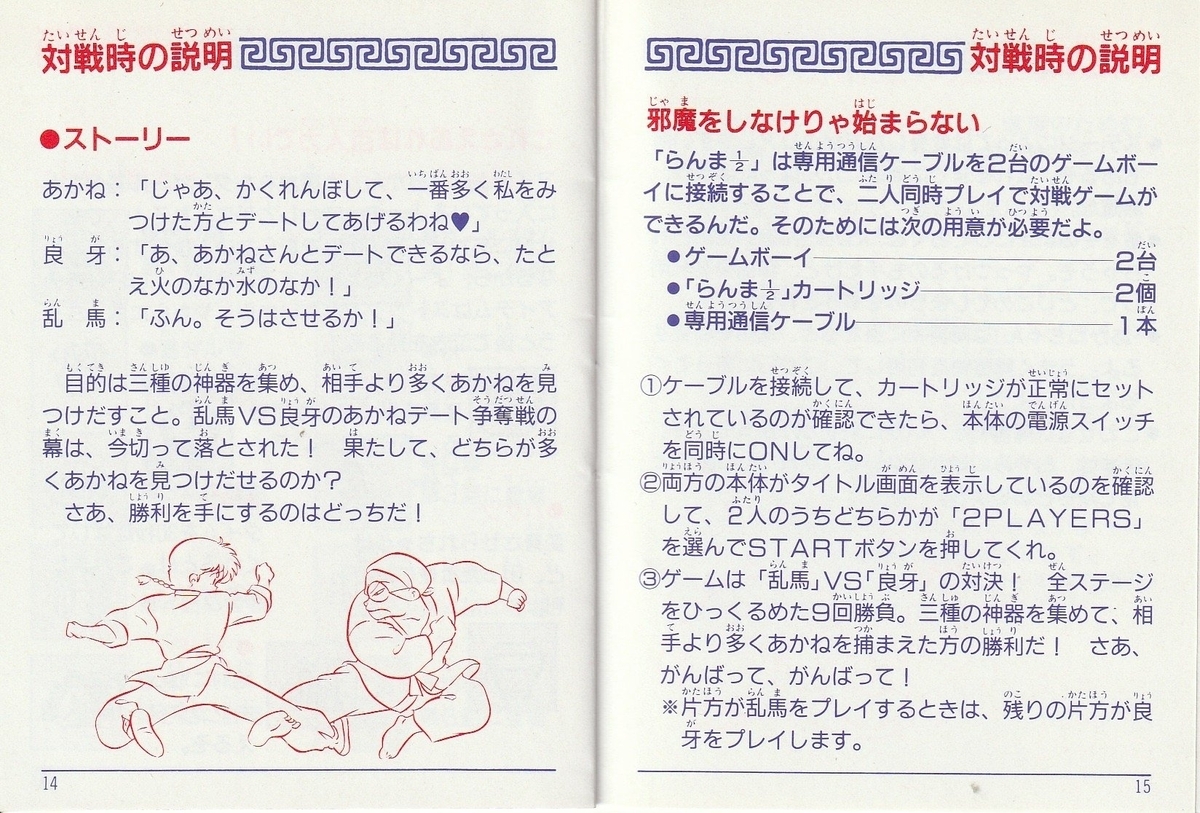 対戦時の説明
●ストーリー
あかね：「じゃあ、かくれんぼして、一番多く私をみ
つけた方とデートしてあげるわね♥」
良　牙：「あ、あかねさんとデートできるなら、たと
え火のなか水のなか！」
乱　馬：「ふん。そうはさせるか！」
目的は三種の神器を集め、相手より多くあかねを見
つけだすこと。乱馬VS良牙のあかねデート争奪戦の
幕は、今切って落とされた！　果たして、どちらが多
くあかねを見つけだせるのか？
さあ、勝利を手にするのはどっちだ！
14
対戦時の説明
邪魔をしなけりゃ始まらない
「らんま½」は専用通信ケーブルを2台のゲームボー
イに接続することで、二人同時プレイで対戦ゲームが
できるんだ。そのためには次の用意が必要だよ。
●ゲームボーイ――――2台
●「らんま½」カートリッジ――――2個
●専用通信ケーブル――――1本
①ケーブルを接続して、カートリッジが正常にセット
されているのが確認できたら、本体の電源スイッチ
を同時にONしてね。
②両方の本体がタイトル画面を表示しているのを確認
して、2人のうちどちらかが「2PLAYERS」
を選んでSTARTボタンを押してくれ。
③ゲームは「乱馬」VS「良牙」の対決！　全ステージ
をひっくるめた9回勝負。三種の神器を集めて、相
手より多くあかねを捕まえた方の勝利だ！　さあ、
がんばって、がんばって！
※片方が乱馬をプレイするときは、残りの片方が良
牙をプレイします。
15